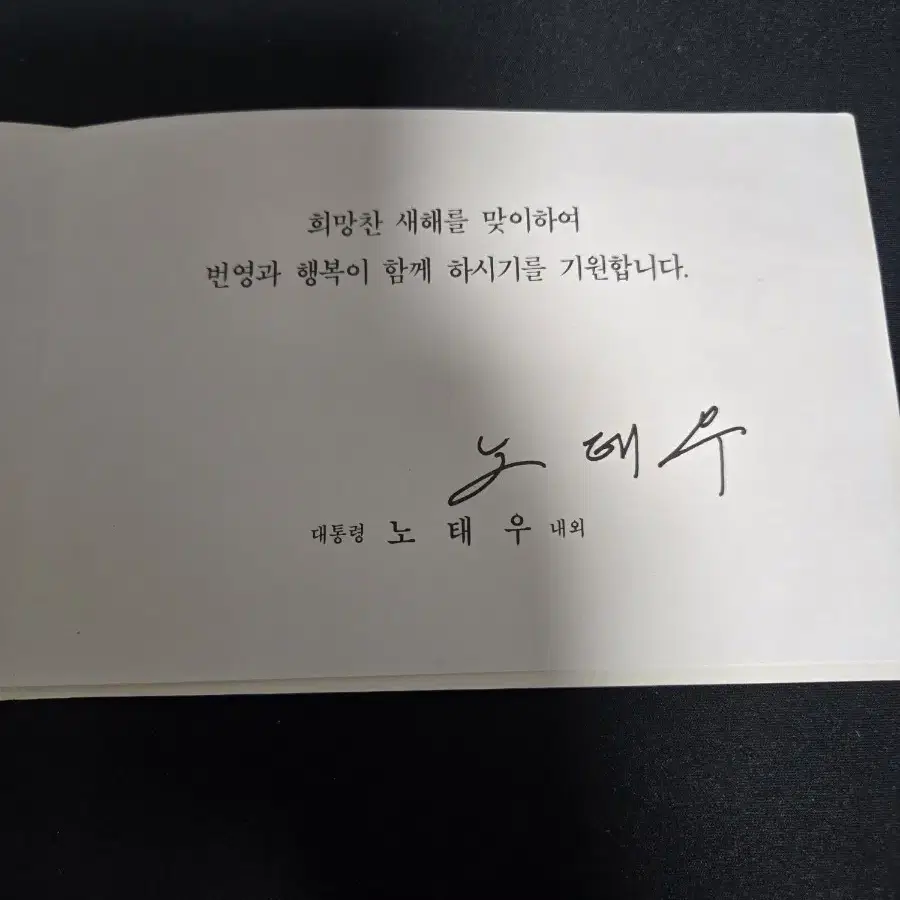 희망찬 새해를 맞이하여
번영과 행복이 함께 하시기를 기원합니다.
노태우
대통령 노태우 내외